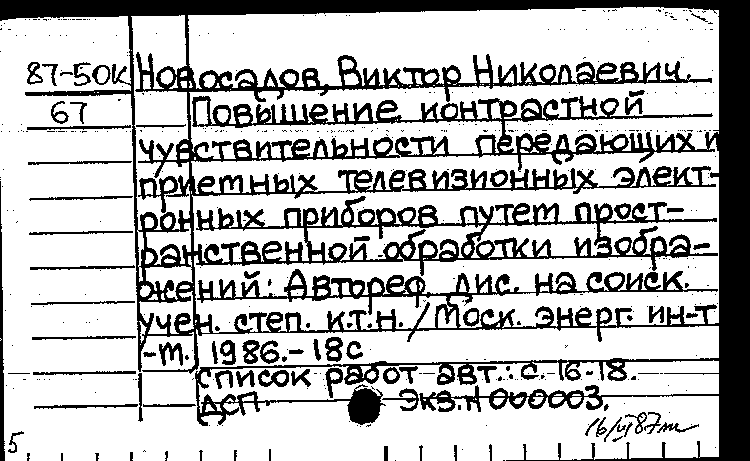 87-50К Новосадов, Виктор Николаевич.
67 Повышение контрастной
чувствительности передающих и
приемных телевизионных элект-
ронных приборов путем прост-
ранственной обработки изобра-
жений: Автореф. дис. на соиск.
учен. степ. к.т.н. / Моск. энерг. ин-т
-М., 1986.-18с
Список работ авт.: с. 16-18.
ДСП. Экз. N 000003.
16/VI 87
5